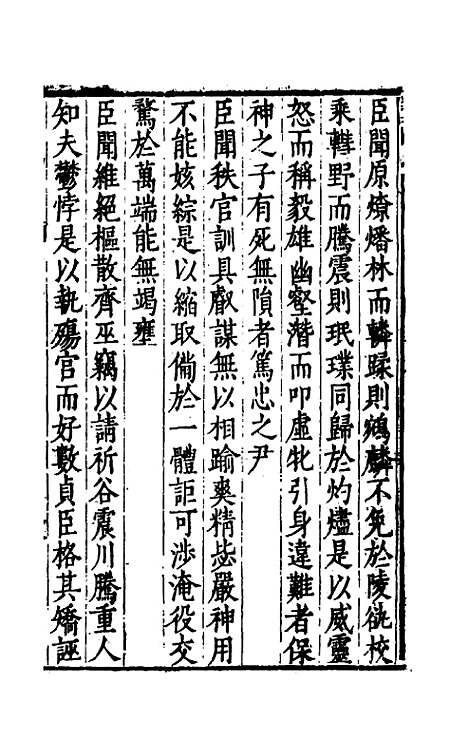 臣聞原燎燔林而轔蹂則鵷麟不免於陵銚校
乘轊野而騰震則珉璞同歸於灼燼是以威靈
怒而稱毅雄幽壑潛而叩虛牝引身違難者保
神之子有死無隕者篤忠之尹
臣聞秩官訓具叡謀無以相踰奭精毖嚴神用
不能姟綜是以縮取倘於一體詎可涉淹役交
騖於萬端能無竭壅
臣聞維絕樞散齊巫竊以請祈谷震川騰重人
知夫鬱悖是以執殤官而好數貞臣格其矯誣